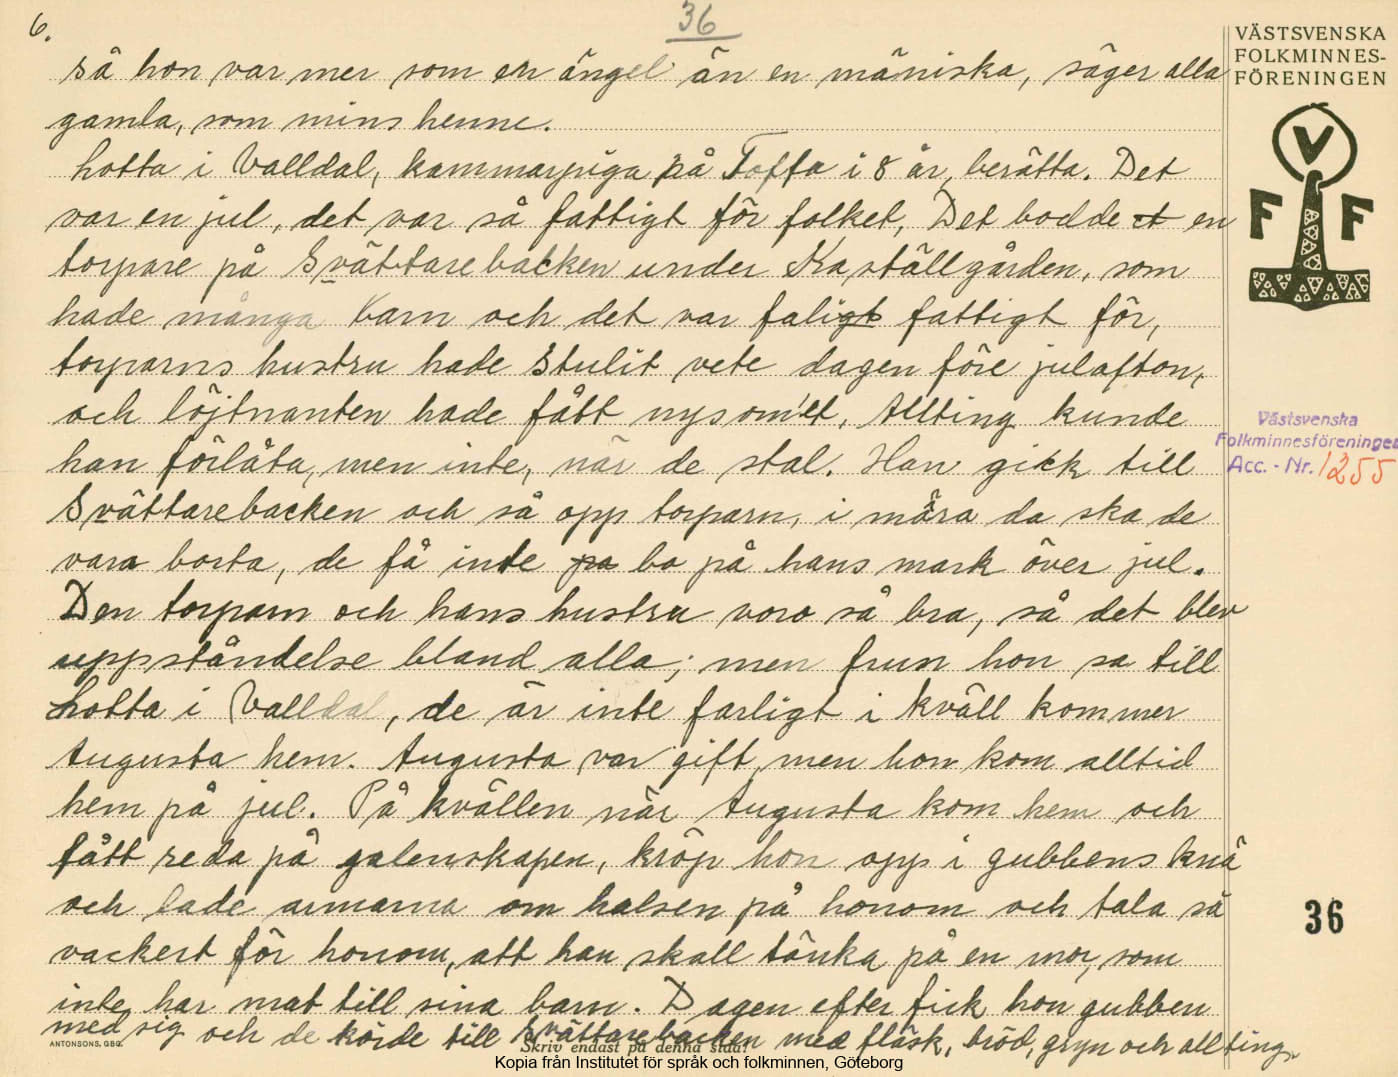 6.
36
så hon var mer som en ängel än en mäniska, säger alla
gamla, som mins henne.
Lotta i Valldal, kammarpiga på Toffta i 8 år, berätta. Det
var en jul, det var så fattigt för folket, Det bodde et en
torpare på Svättarebacken under Kaställgården, som
hade många barn och det var faligt fattigt för,
torparns hustru hade stulit vete dagen före julafton,
och löjtnanten hade fått nys om'et, Allting kunde
han förlåta, men inte, när de stal. Han gick till
Svättarebacken och så opp torparn, i möra da ska de
vara borta, de få inte pa bo på hans mark över jul.
Den torparn och hans hustru voro så bra, så det blev
uppståndelse bland alla; men frun hon sa till
Lotta i Valldal, de är inte farligt i kväll kommer
Augusta hem. Augusta var gift, men hon kom alltid
hem på jul. På kvällen när Augusta kom hem och
fått reda på galenskapen, kröp hon opp i gubbens knä
och lade armarna om halsen på honom och tala så
vackert för honom, att han skall tänka på en mor, som
inte har mat till sina barn. Dagen efter fick hon gubben
med sig och de körde till Svättarebacken med fläsk, bröd, gryn och allting.
VÄSTSVENSKA
FOLKMINNES-
FÖRENINGEN
V
F F
Västsvenska
Folkminnesföreningen
Acc. - Nr. 1255
36
ANTONSONS, GBG.
Skriv endast på denna sida!
Kopia från Institutet för språk och folkminnen, Göteborg